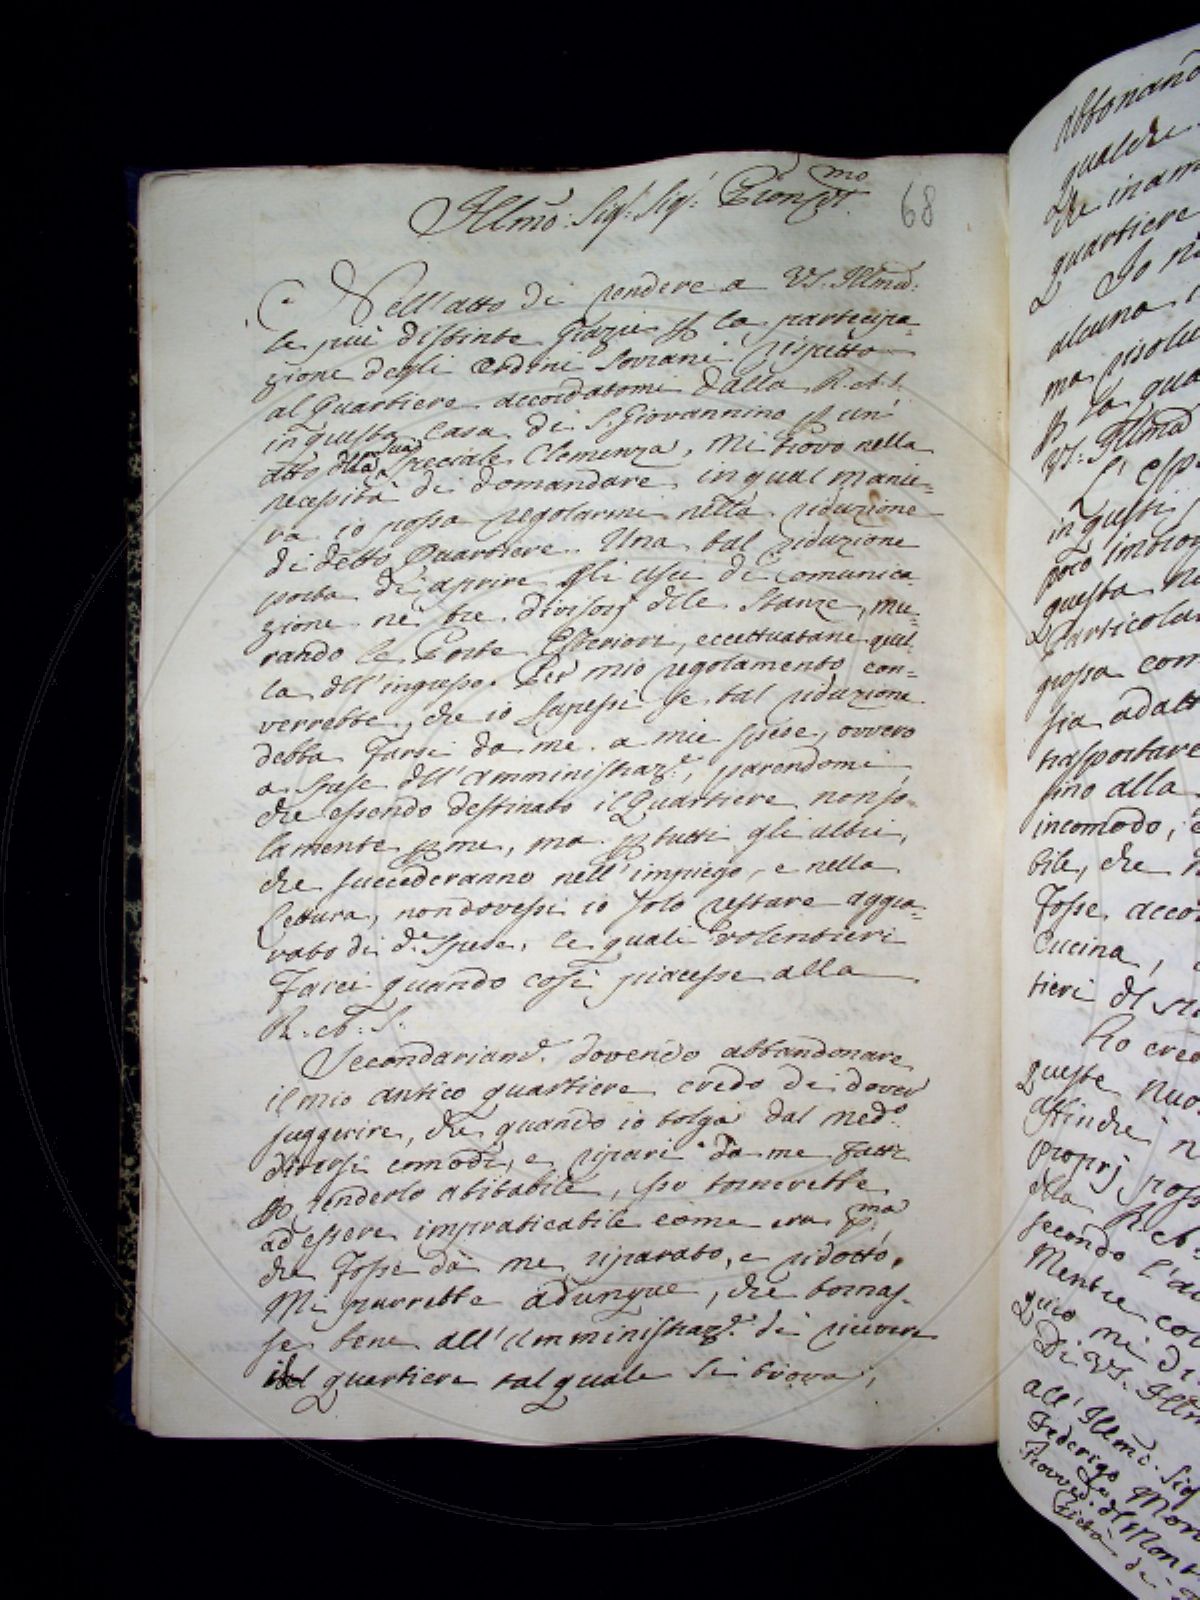 Illmo: Sigr. Sigr: Pron Col.mo
68
Nell'atto di rendere a VS. Illma:
le più distinte Grazie p la partecipa=
zione degli Ordini Sovrani rispetto
al Quartiere accordatomi dalla R. A. S.
in questa Casa di S. Giovannino p un'
atto della sua Speciale Clemenza, Mi trovo nella
necessità di domandare in qual manie=
ra io possa regolarmi nella riduzione
di detto Quartiere. Una tal riduzione
porta di aprire gli Usci di comunica
zione nè tre divisorj delle Stanze, mu=
rando le Porte Esteriori, eccettuatane quel=
la dell'ingresso. Per mio regolamento con=
verrebbe, che io sapessi se tal riduzione
debba farsi da me a mie spese, ovvero
a spese dell'Amministraz.e, parendomi,
che essendo destinato il Quartiere non so=
lamente p me, ma p tutti gli altri,
che succederanno nell'impiego, e nella
Lettura, non dovessi io solo restare aggra=
vato di d.e Spese, le quali volentieri
farei quando così piacesse alla
R. A. S.
Secondariam.e dovendo abbandonare
il mio antico quartiere credo di dover
suggerire, che quando io tolga dal med.o
diversi comodi, e ripari da me fatti
p renderlo abitabile, tornerebbe
ad essere impraticabile come era p.ma
che fosse da me riparato, e ridotto.
Mi parrebbe adunque, che tornas=
se bene all'Amministraz.e di ricevere
il quartiere tal quale si trova,
abbonand
qualche
che inam
quartiere
Io n
alcuna
ma risolu
p la qua
VS: Illma
L'esp
in questi
però
questa
Particola
grossa com
sia adatt
trasportare
fino alla
incomodo,
bile, che
fosse acco
Cucina,
tieri del
Ho cred
queste nuo
affinchè n
proprj poss
della R. A.
secondo l'a
Mentre co
quio mi d
Di VS. Illm
all'Illmo. Sig
Federigo Mor
Provved.re del Mont
Pietà di